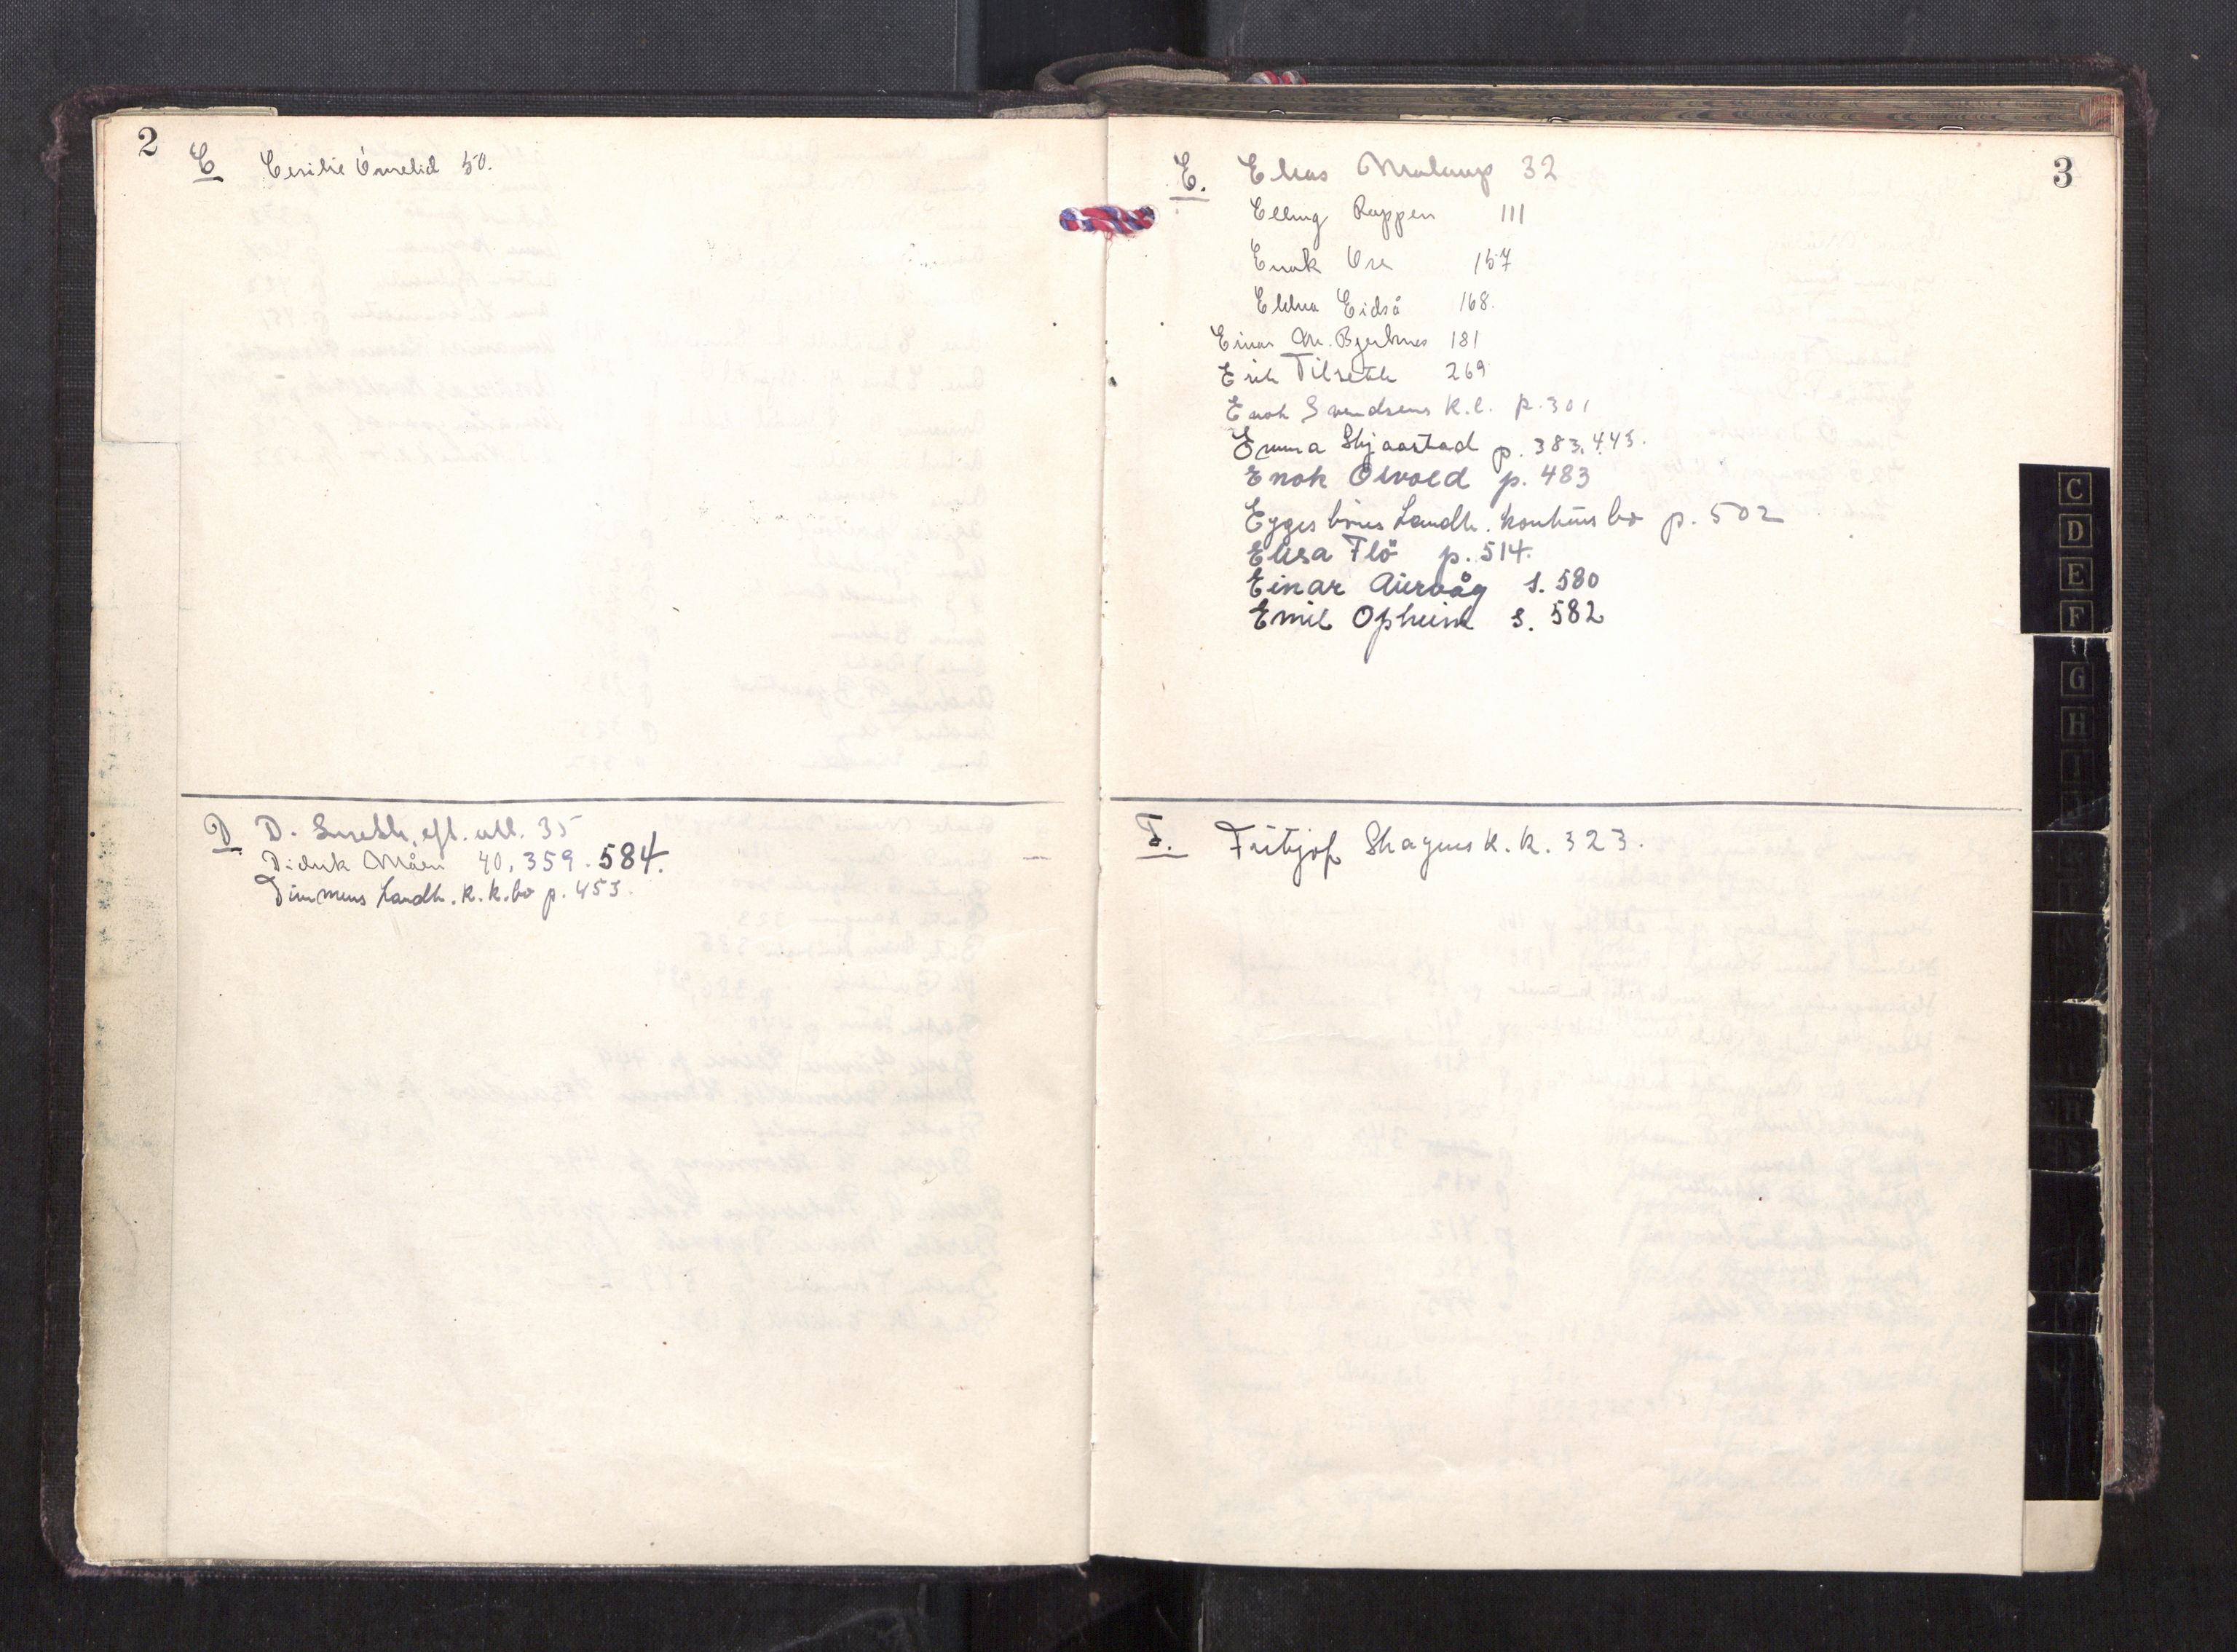 2
C Cesilie Ørsrelid 50.
D D. Smeth, eft. utl. 35
Didrik Måren 40, 359. 584.
Dimmens Landh. k.k.bo p. 453.
3
E. Elias 32
Elling Rappen 111
Enok Ose 157
Eldna Eidså 168.
Einar M. Bjerknes 181
Erik Tilseth 269
Enok Svendsens k.l. p. 301
Emma Skjaastad p. 383, 445.
Enok Osvold p. 483
Eggesbønes Landh. konkurs bo p. 502
Elisa Flö p. 514.
Einar Aurvåg s. 580
Emil Opheim s. 582
F. Fritjof Skagens k.k. 323.
C
D
E
F
G
H
I
J